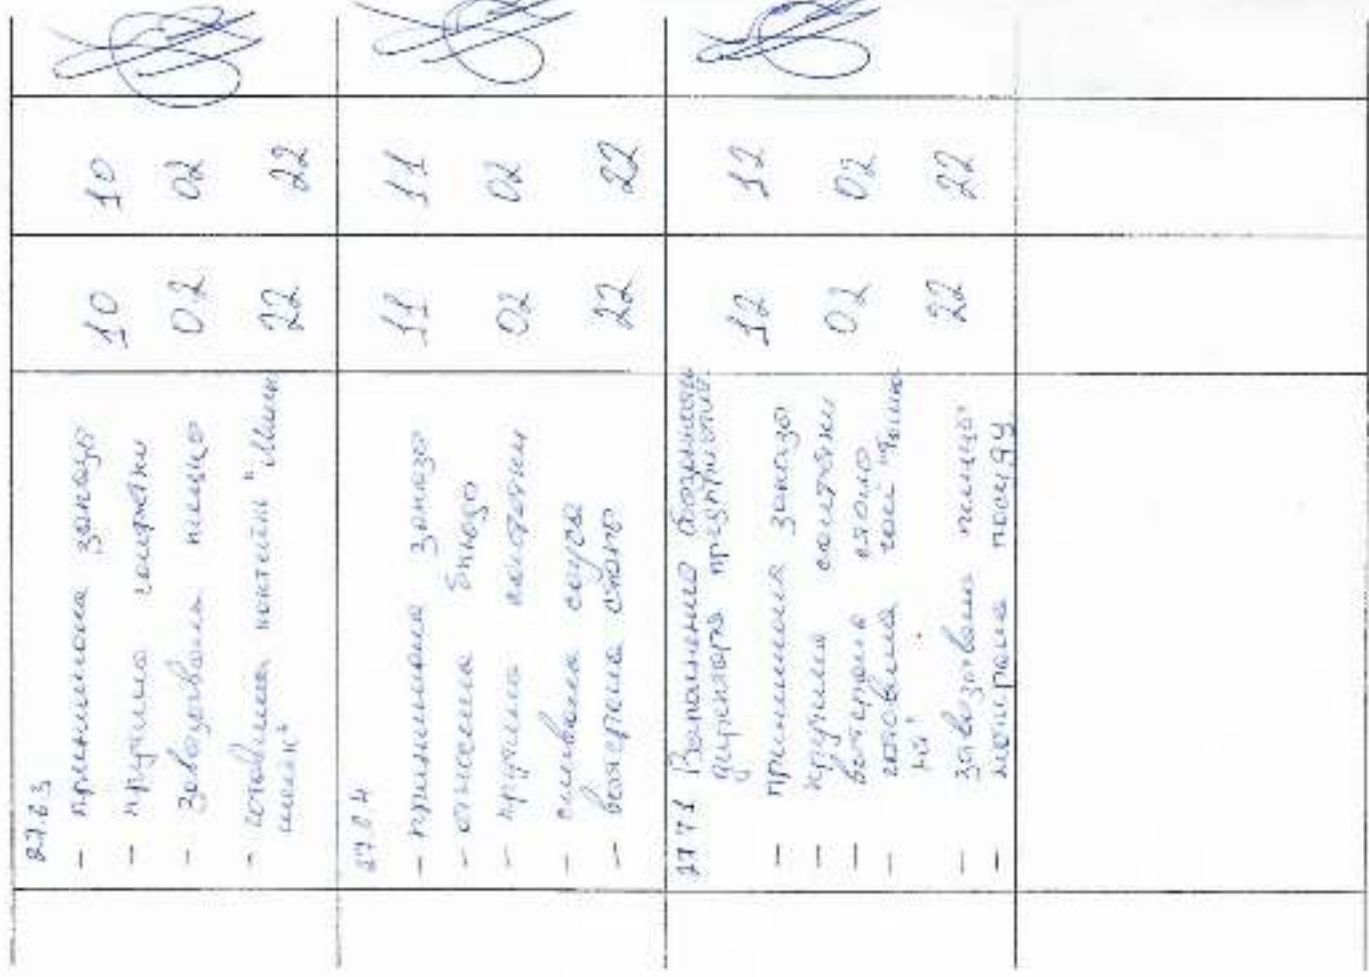 27.6.3
- принимала заказ
- крутила салфетки
- завозовала пиццу
- готовила коктейль "Милк
шейк"
10
02
22
10
02
22
27.6.4
- принимала заказ
- относила блюдо
- крутила салфетки
- сливала соуса
- вытерала стол
11
02
22
11
02
22
2771 Выполнение обязанности
директора предприятия
- принимала заказ
- крутила салфетки
- вытерала стол
- готовила чай
- завозовала пиццу
- натирала посуду
12
02
22
12
02
22